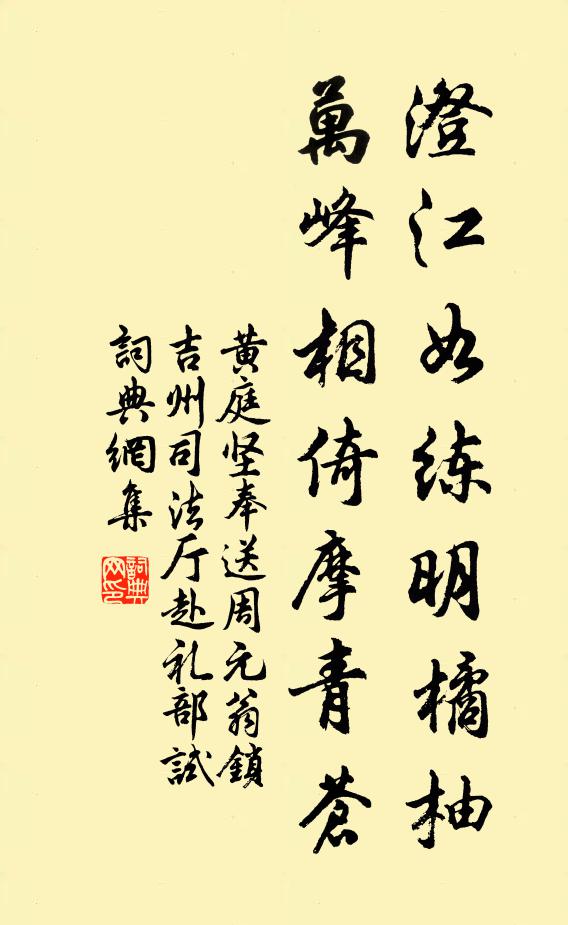 澄江如练明橘柚
萬峰相倚摩青蒼
黄庭坚奉送周元翁鎖
吉州司法厅赴礼部試
詞典網集
詞典网印